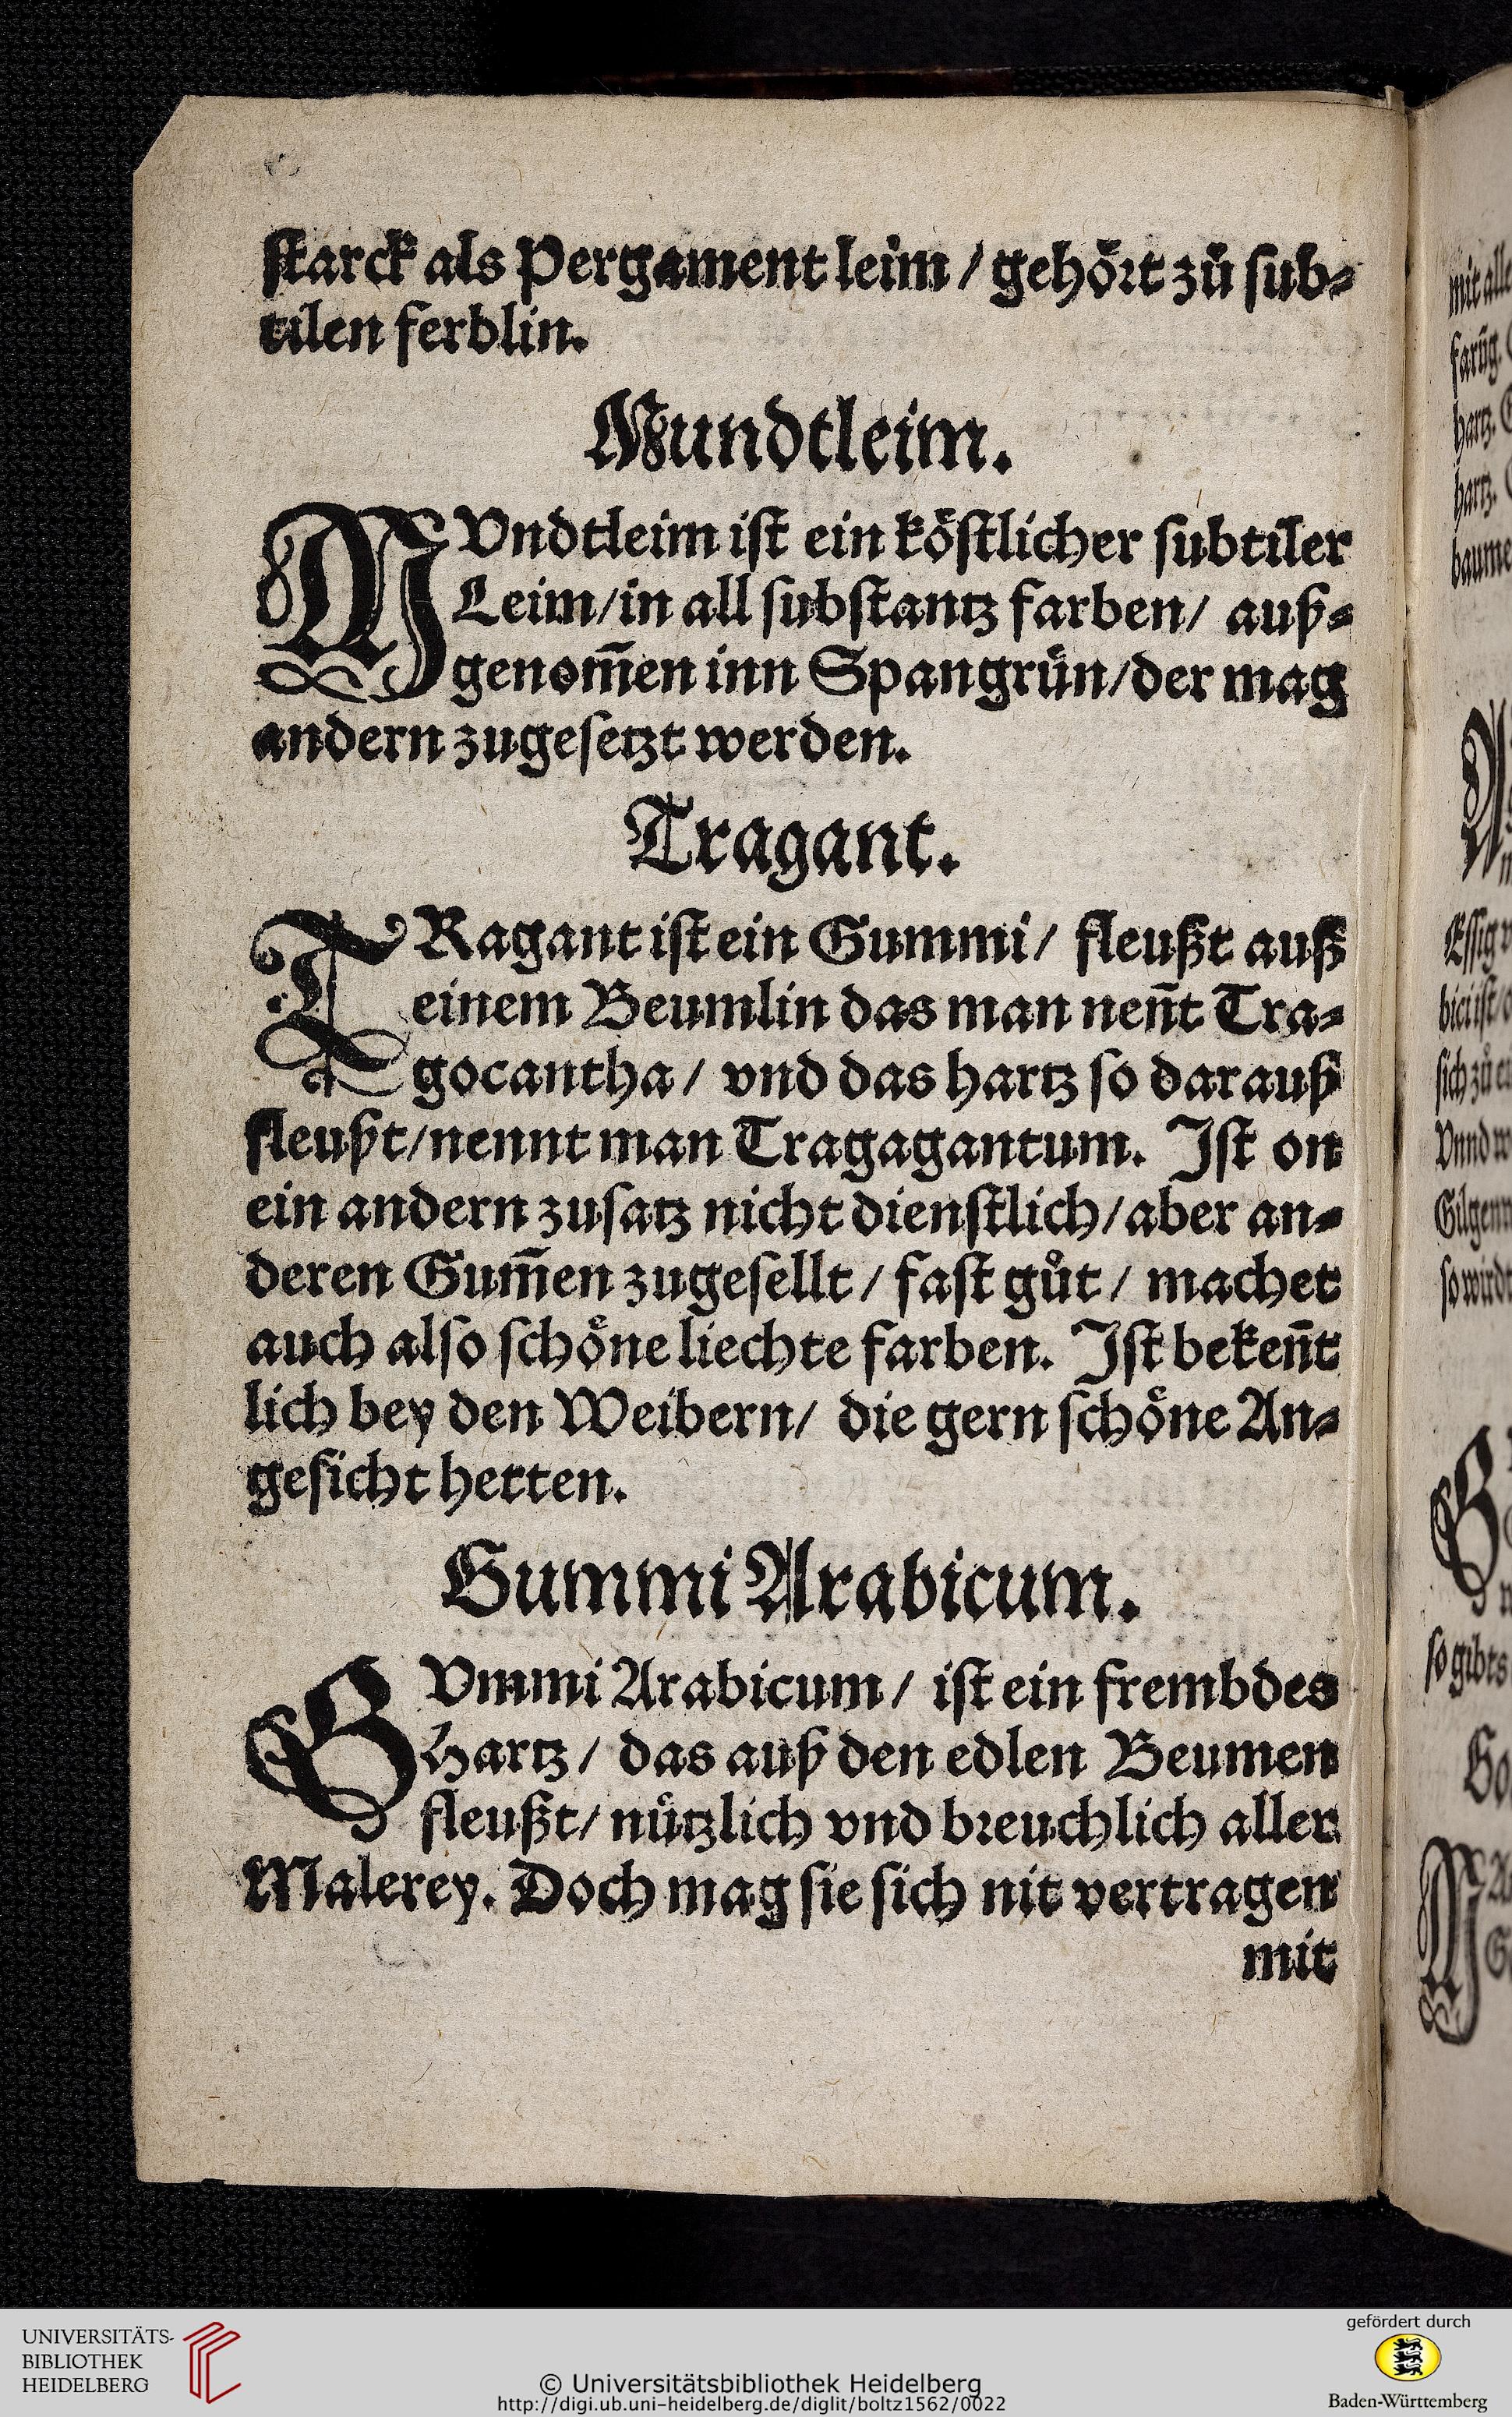 ſtarck als Pergament leim / gehoͤrt zuͦ ſub⸗
tilen ferblin.
Mundtleim.
MVndtleim iſt ein koͤſtlicher ſubtiler
Leim/in all ſubſtantz farben/ auß⸗
genom̃en inn Spangruͤn/der mag
andern zugeſetzt werden.
Tragant.
TRagant iſt ein Gummi/ fleußt auß
einem Beumlin das man nen̄t Tra⸗
gocantha/ vnd das hartz ſo darauß
fleußt/nennt man Tragagantum. Iſt on
ein andern zuſatz nicht dienſtlich/aber an⸗
deren Gum̃en zugeſellt/ faſt guͦt/ machet
auch alſo ſchoͤne liechte farben. Iſt beken̄t
lich bey den Weibern/ die gern ſchoͤne An⸗
geſicht hetten.
Gummi Arabicum.
GVmmi Arabicum/ iſt ein frembdes
Hartz/ das auß den edlen Beumen
fleußt/ nuͤtzlich vnd breuchlich aller
Malerey. Doch mag ſie ſich nit vertragen
mit
mit alle
hartz.
hartz.
baume
Eſſig
Vnnd
Gilgenn
ſo wirdt
ſo gibts
UNIVERSITÄTS-
BIBLIOTHEK
HEIDELBERG
© Universitätsbibliothek Heidelberg
http://digi.ub.uni-heidelberg.de/diglit/boltz1562/0022
gefördert durch
Baden-Württemberg